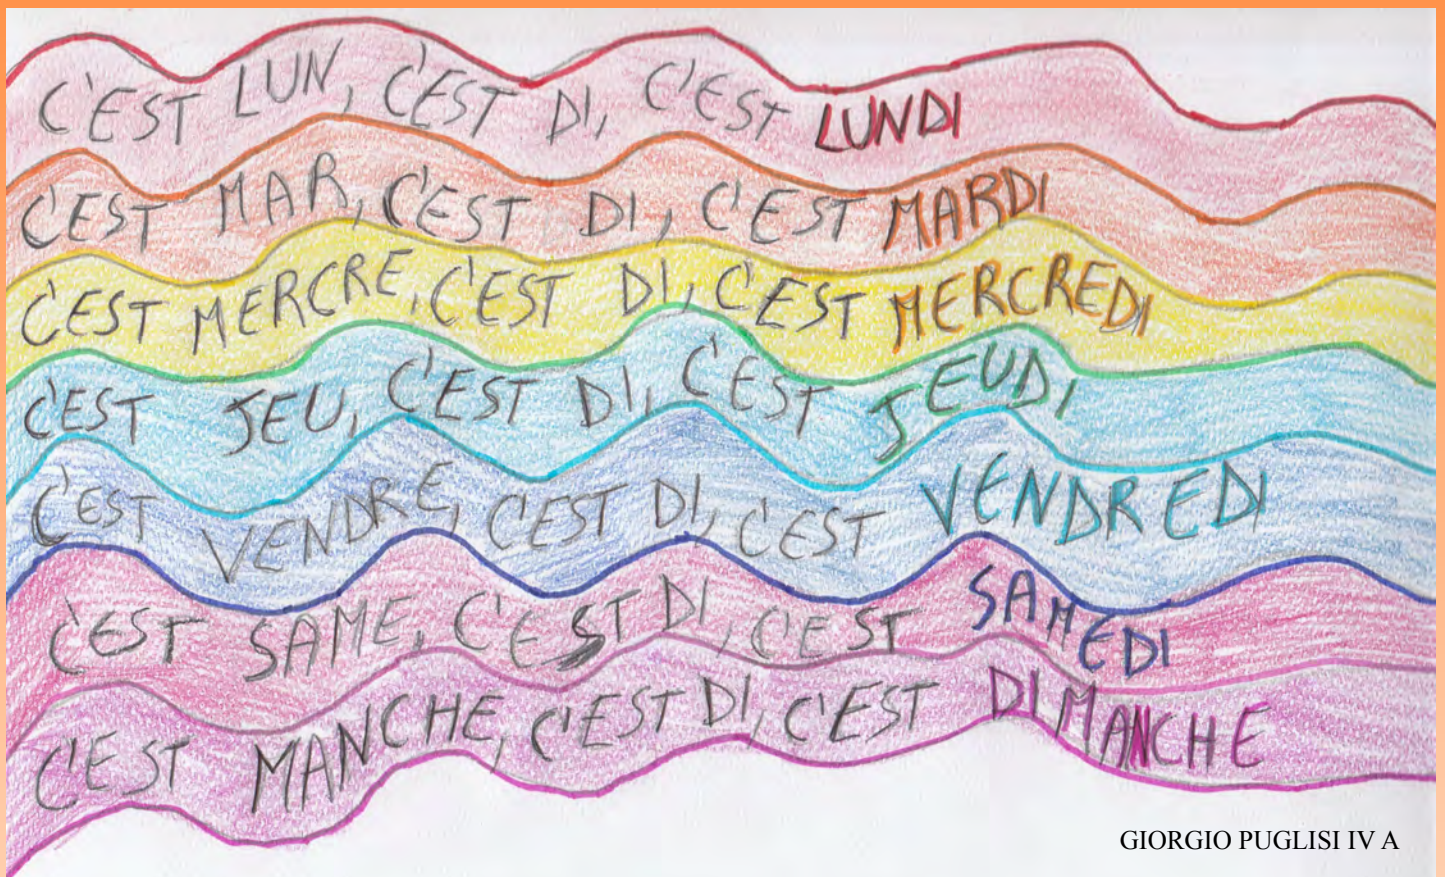 C'EST LUN, C'EST DI, C'EST LUNDI
C'EST MAR, C'EST DI, C'EST MARDI
C'EST MERCRE, C'EST DI, C'EST MERCREDI
C'EST JEU, C'EST DI, C'EST JEUDI
C'EST VENDRE, C'EST DI, C'EST VENDREDI
C'EST SAME, C'EST DI, C'EST SAMEDI
C'EST MANCHE, C'EST DI, C'EST DIMANCHE
GIORGIO PUGLISI IV A